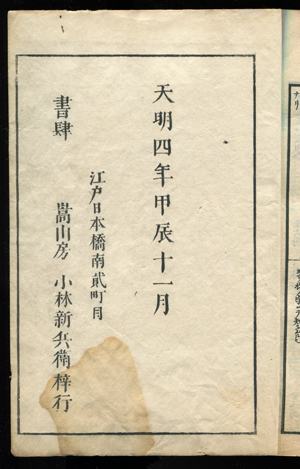 天明四年甲辰十一月
江戸日本橋南貳町目
書肆　嵩山房　小林新兵衞梓行